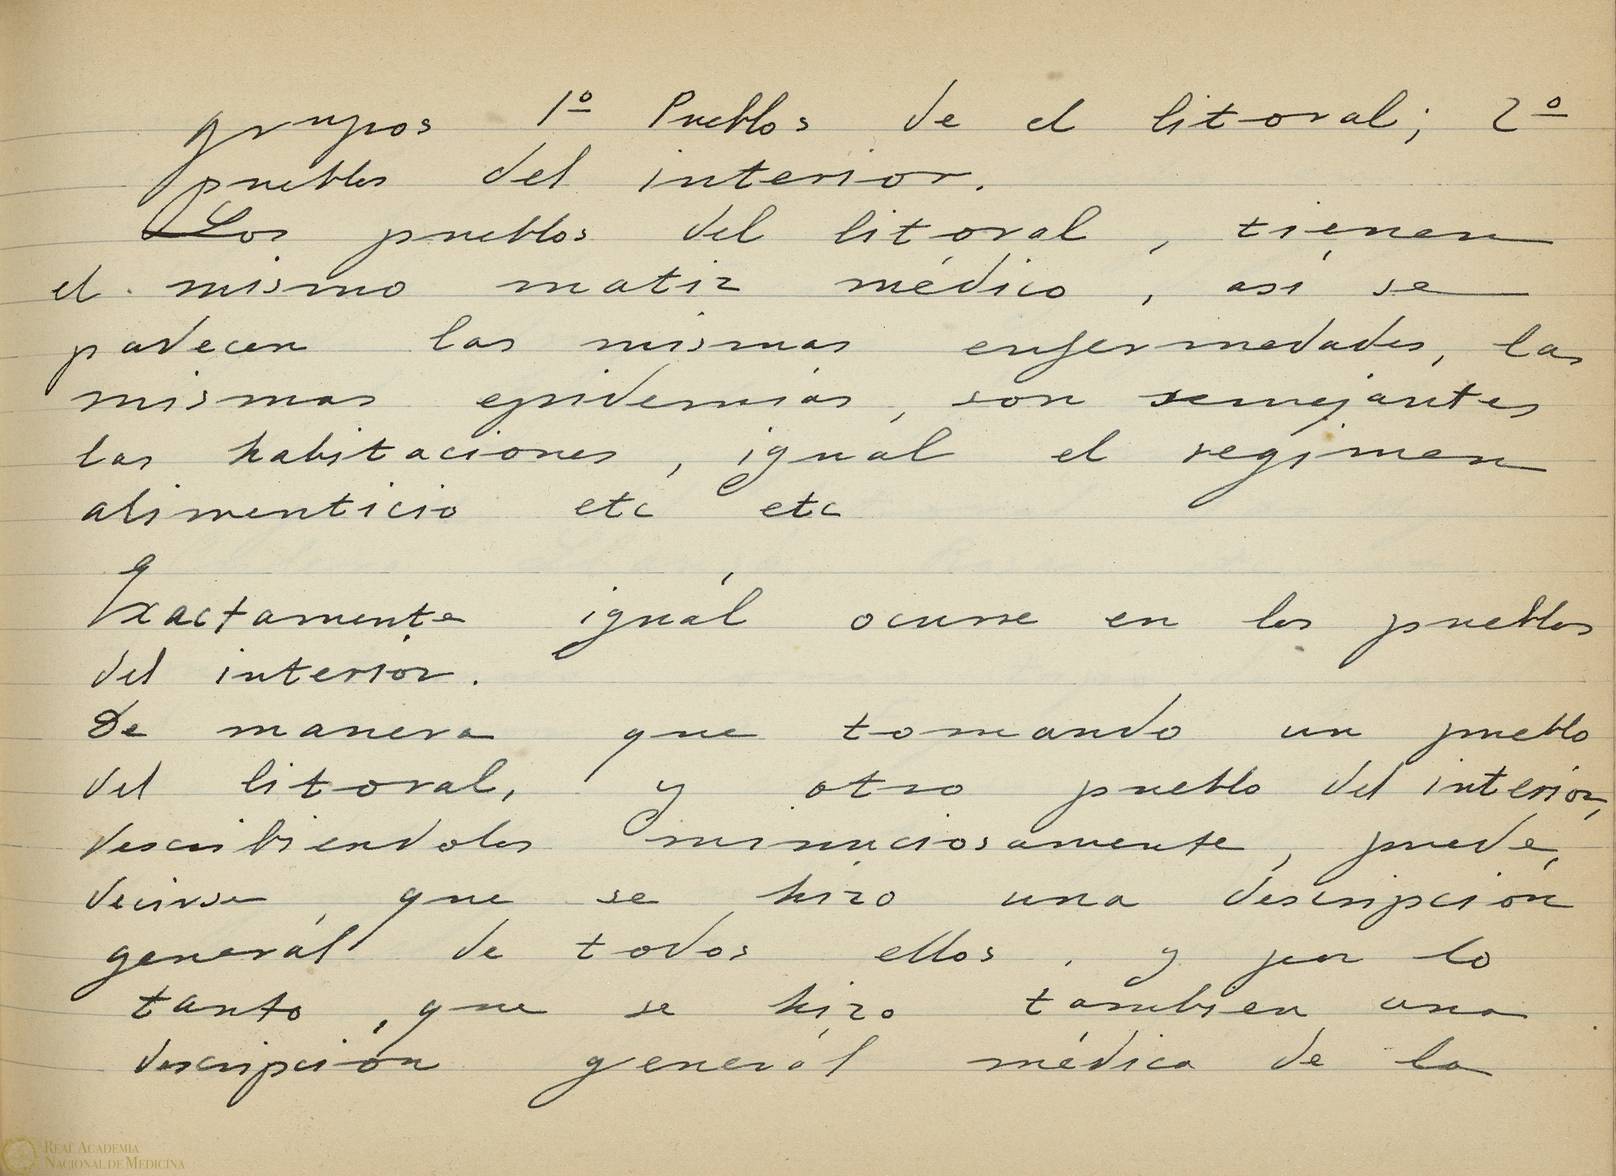 grupos 1º Pueblos de el litoral; 2º
pueblos del interior.
Los pueblos del litoral, tienen
el mismo matiz médico, así se
padecen las mismas enfermedades, las
mismas epidemias, son semejantes
las habitaciones, iguál el regimen
alimenticio etc etc
Exactamente iguál ocurre en los pueblos
del interior.
De manera que tomando un pueblo
del litoral, y otro pueblo del interior,
describiendolos minuciosamente, puede,
decirse, que se hizo una descripción
generál de todos ellos. y por lo
tanto, que se hizo tambien una
descripción generál médica de la
REAL ACADEMIA
NACIONAL DE MEDICINA